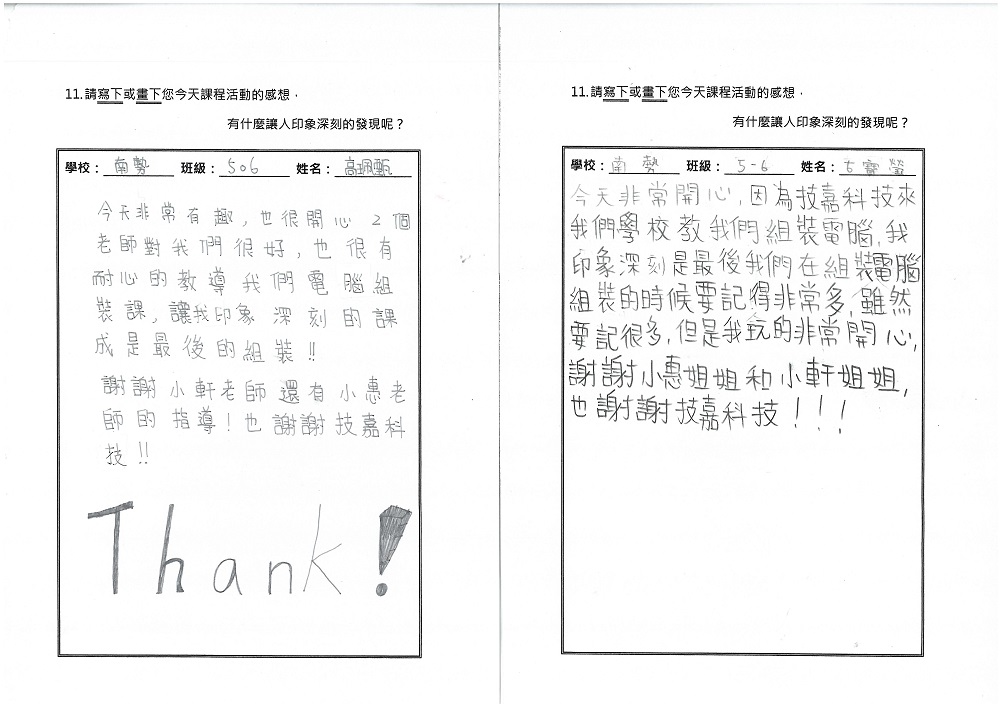 11.請寫下或畫下您今天課程活動的感想，
有什麼讓人印象深刻的發現呢？
學校： 南勢 班級： 506 姓名： 高珮甄
今天非常有趣，也很開心2個
老師對我們很好，也很有
耐心的教導我們電腦組
裝課，讓我印象深刻的課
成是最後的組裝!!
謝謝小軒老師還有小惠老
師的指導！也謝謝技嘉科
技!!
Thank!
11.請寫下或畫下您今天課程活動的感想，
有什麼讓人印象深刻的發現呢？
學校： 南勢 班級： 5-6 姓名： 古寶瑩
今天非常開心，因為技嘉科技來
我們學校教我們組裝電腦，我
印象深刻是最後我們在組裝電腦
組裝的時候要記得非常多，雖然
要記很多，但是我玩的非常開心，
謝謝小惠姐姐和小軒姐姐，
也謝謝技嘉科技！！！